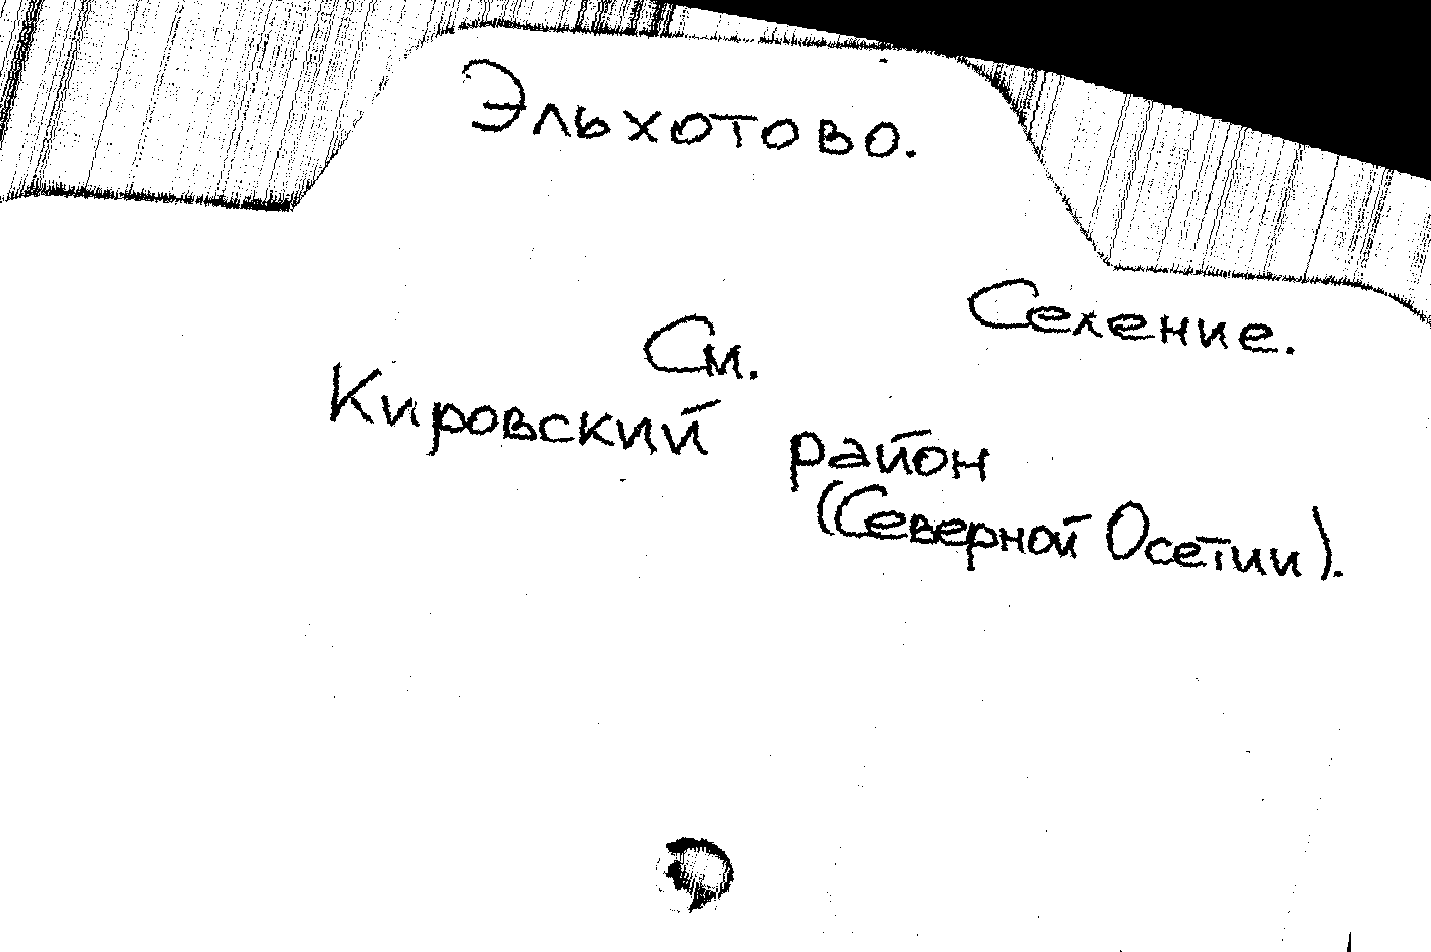 Эльхотово.
Селение.
См.
Кировский район
(Северной Осетии).